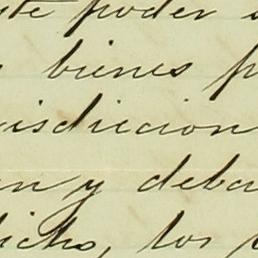 ste poder s
bienes p
isdiccion
an y deba
dicho, los